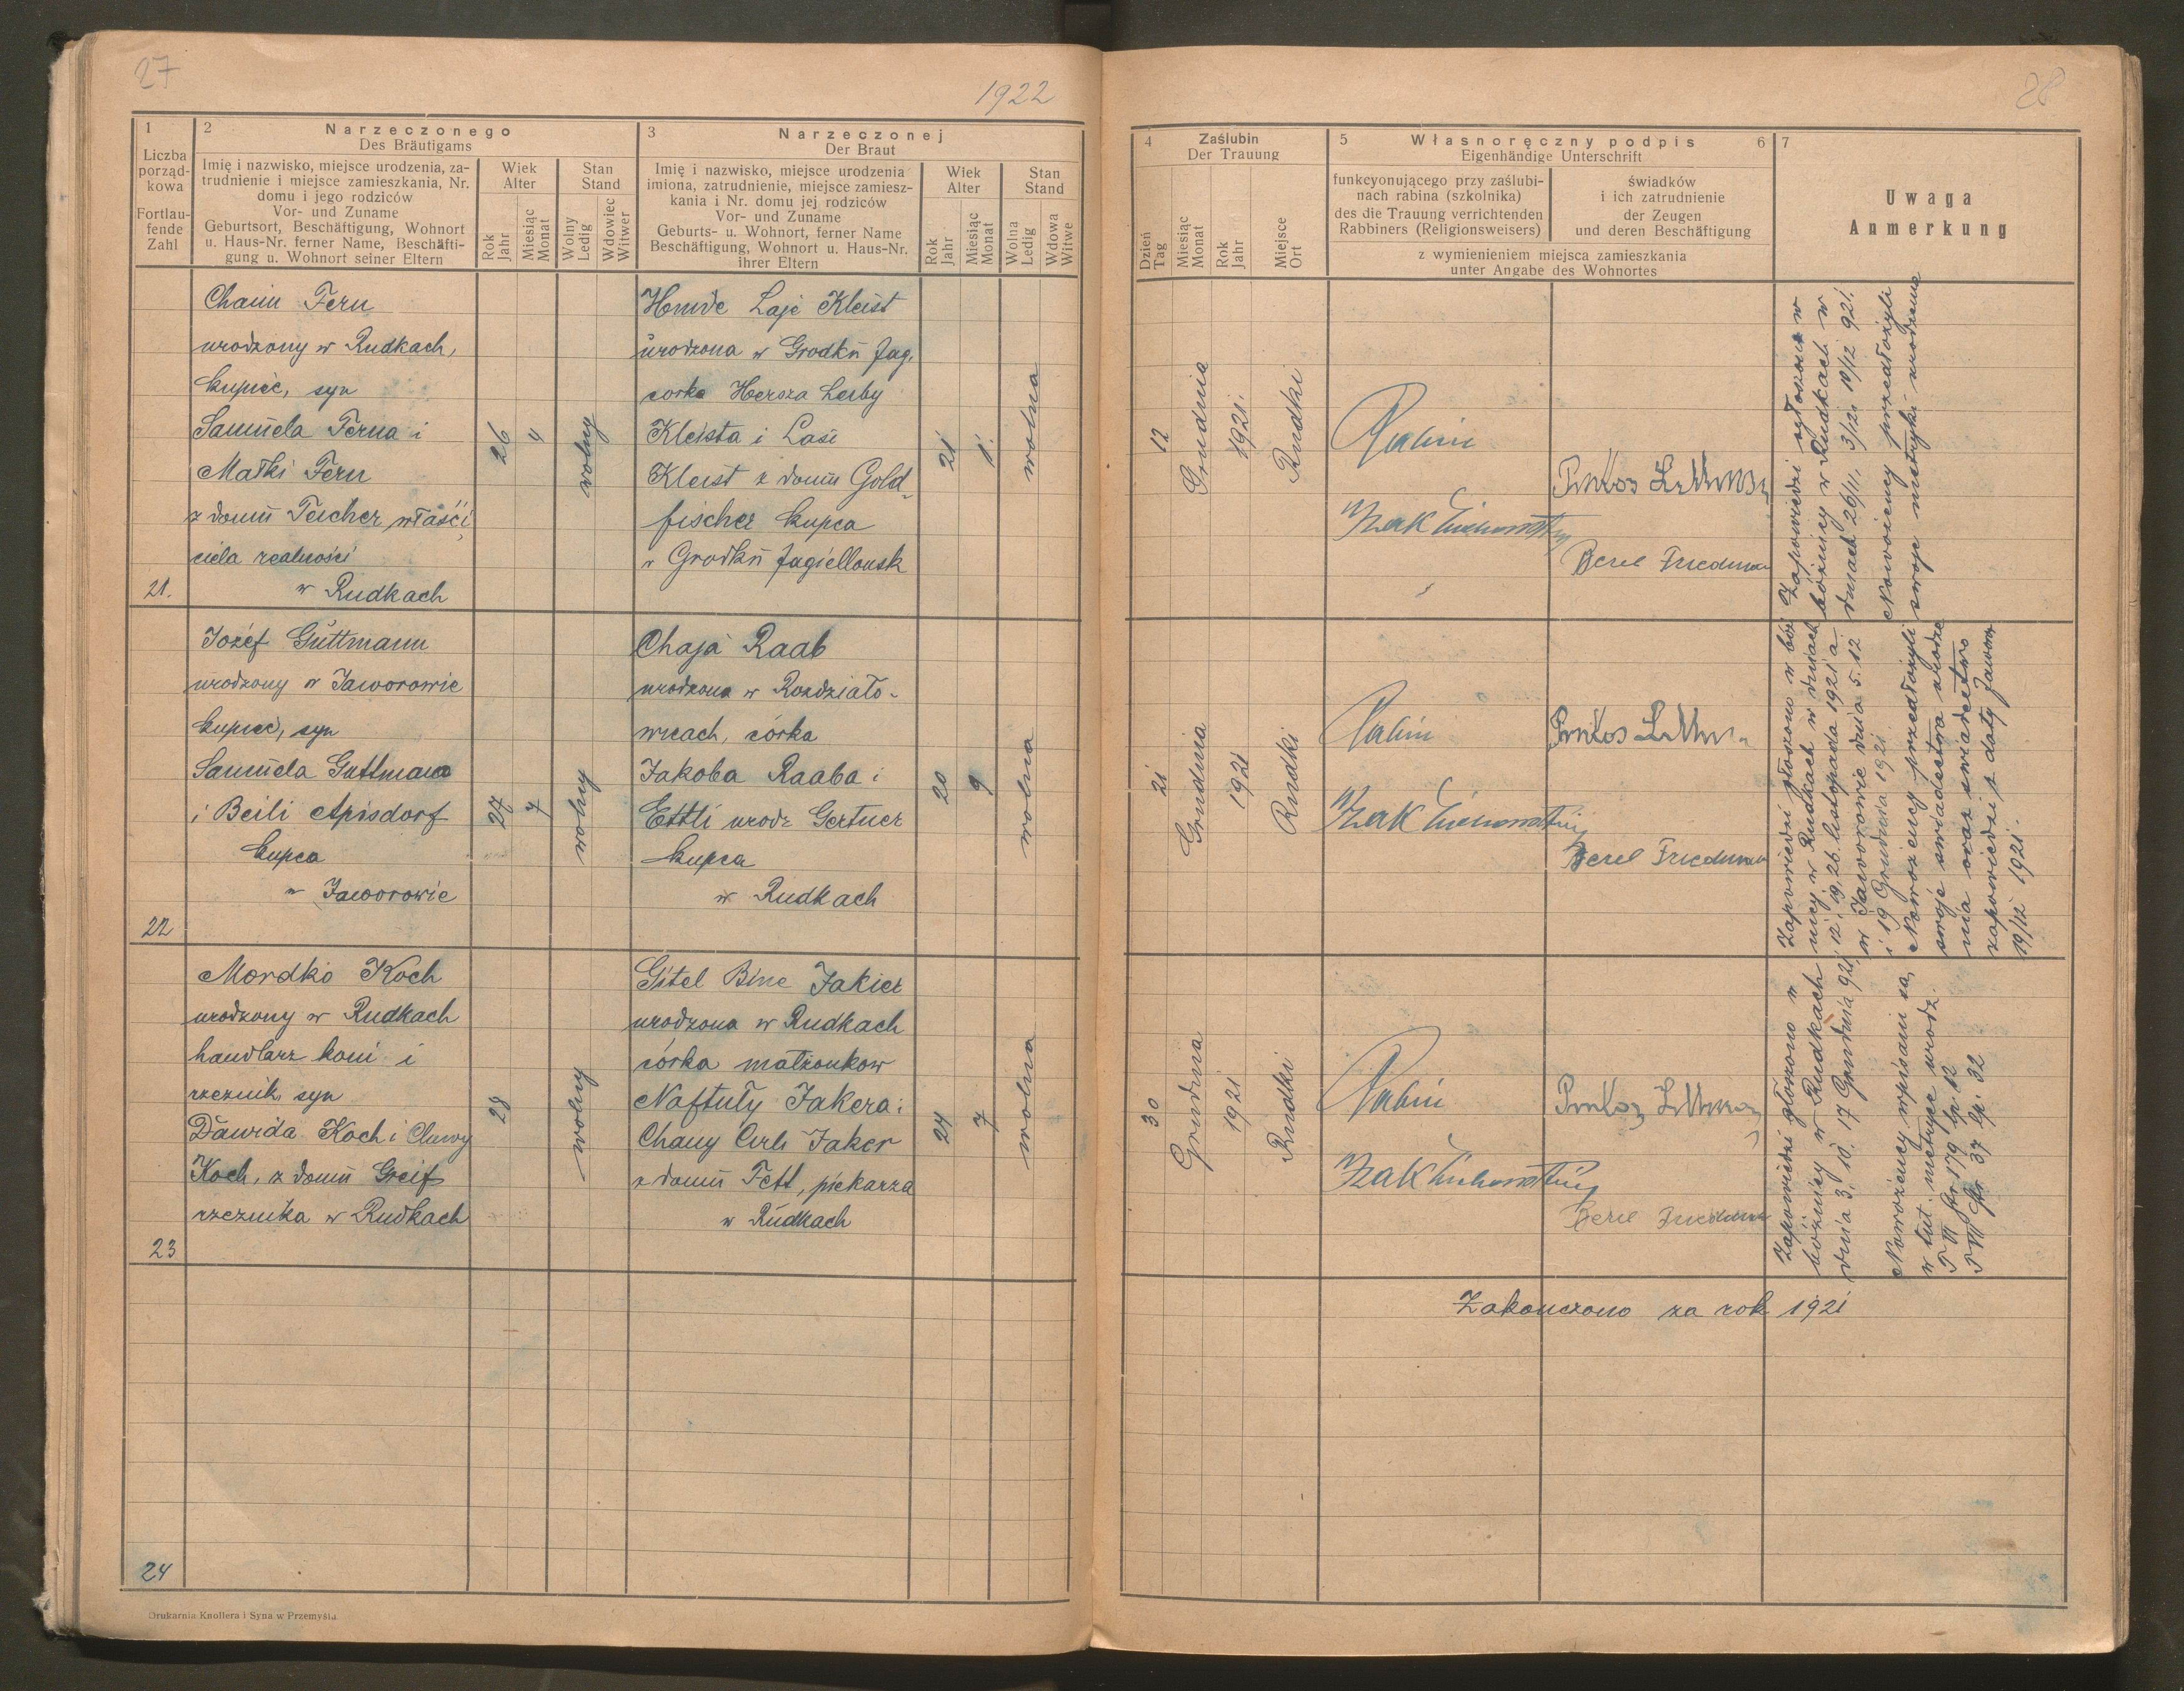 27
1922
1
Liczba
porząd-
kowa
Fortlau-
fende
Zahl
2
Narzeczonego
Des Bräutigams
Imię i nazwisko, miejsce urodzenia, za-
trudnienie i miejsce zamieszkania, Nr.
domu i jego rodziców
Vor- und Zuname
Geburtsort, Beschäftigung, Wohnort
u. Haus-Nr. ferner Name, Beschäfti-
gung u. Wohnort seiner Eltern
Wiek
Alter
Rok
Jahr
Miesiąc
Monat
Stan
Stand
Wolny
Ledig
Wdowiec
Witwer
3
Narzeczonej
Der Braut
Imię i nazwisko, miejsce urodzenia
imiona, zatrudnienie, miejsce zamiesz-
kania i Nr. domu jej rodziców
Vor- und Zuname
Geburts- u. Wohnort, ferner Name
Beschäftigung, Wohnort u. Haus-Nr.
ihrer Eltern
Wiek
Alter
Rok
Jahr
Miesiąc
Monat
Stan
Stand
Wolna
Ledig
Wdowa
Witwe
21.
Chaim Fern
urodzony w Rudkach,
kupiec, syn
Samuela Ferna i
Małki Fern
z domu Teicher właści
ciela realności
w Rudkach
26
4
wolny
Hinde Laje Kleist
urodzona w Grodku Jag.
corka Hersza Leiby
Kleista i Lasi
Kleist z domu Gold-
fischer kupca
w Grodku Jagiellonsk
21
1.
wolna
22
Jozef Guttmann
urodzony w Jaworowie
kupiec, syn
Samuela Guttmana
i Beili Apisdorf
kupca
w Jaworowie
27
7
wolny
Chaja Raab
urodzona w Rozdziało-
wicach, córka
Jakoba Raaba i
Ettli urodz Gertner
kupca
w Rudkach
20
9
wolna
23
Mordko Koch
urodzony w Rudkach
handlarz koni i
rzeznik, syn
Dawida Koch i Chawy
Koch, z domu Greif
rzeznika w Rudkach
28
wolny
Gitel Bine Jakier
urodzona w Rudkach
córka małżonkow
Naftuły Jakera i
Chany Cirli Jaker
z domu Fett, piekarza
w Rudkach
24
7
wolna
24
Drukarnia Knollera i Syna w Przemyślu
28
4
Zaślubin
Der Trauung
Dzień
Tag
Miesiąc
Monat
Rok
Jahr
Miejsce
Ort
5
Własnoręczny podpis
6
Eigenhändige Unterschrift
funkcyonującego przy zaślubi-
nach rabina (szkolnika)
des die Trauung verrichtenden
Rabbiners (Religionsweisers)
świadków
i ich zatrudnienie
der Zeugen
und deren Beschäftigung
z wymienieniem miejsca zamieszkania
unter Angabe des Wohnortes
7
Uwaga
Anmerkung
12
Grudnia
1921.
Rudki
Rabin
Izak
Pinkas
Berel Friedman
Zapowiedzi ogłoszone w
bóżnicy w Rudkach w
dniach 26/11, 3/12 10/12 921.
Nowożency przedłożyli
swoje metryki urodzenia
21
Grudnia
1921
Rudki
Rabin
Izak
Pinkas
Berel Friedman
Zapowiedzi głoszono w bóż
nicy w Rudkach w dniach
12. 19. 26. listopada 1921 a
w Jaworowie dnia 5. 12
i 19 Grudnia 1921
Nowożency przedłożyli
swoje świadectwa urodze
nia oraz świadectwo
zapowiedzi z daty Jaworow
19/12 1921.
30
Grudnia
1921
Rudki
Rabin
Izak
Pinkas
Berel Friedman
Zapowiedzi głoszono w
bóżnicy w Rudkach
dnia 3. 10. 17 Grudnia 921
Nowożency wpisani są
w tut. metryce urodz.
T VI str 179 lp. 12
T VII str 37 lp. 32
Zakonczono za rok 1921